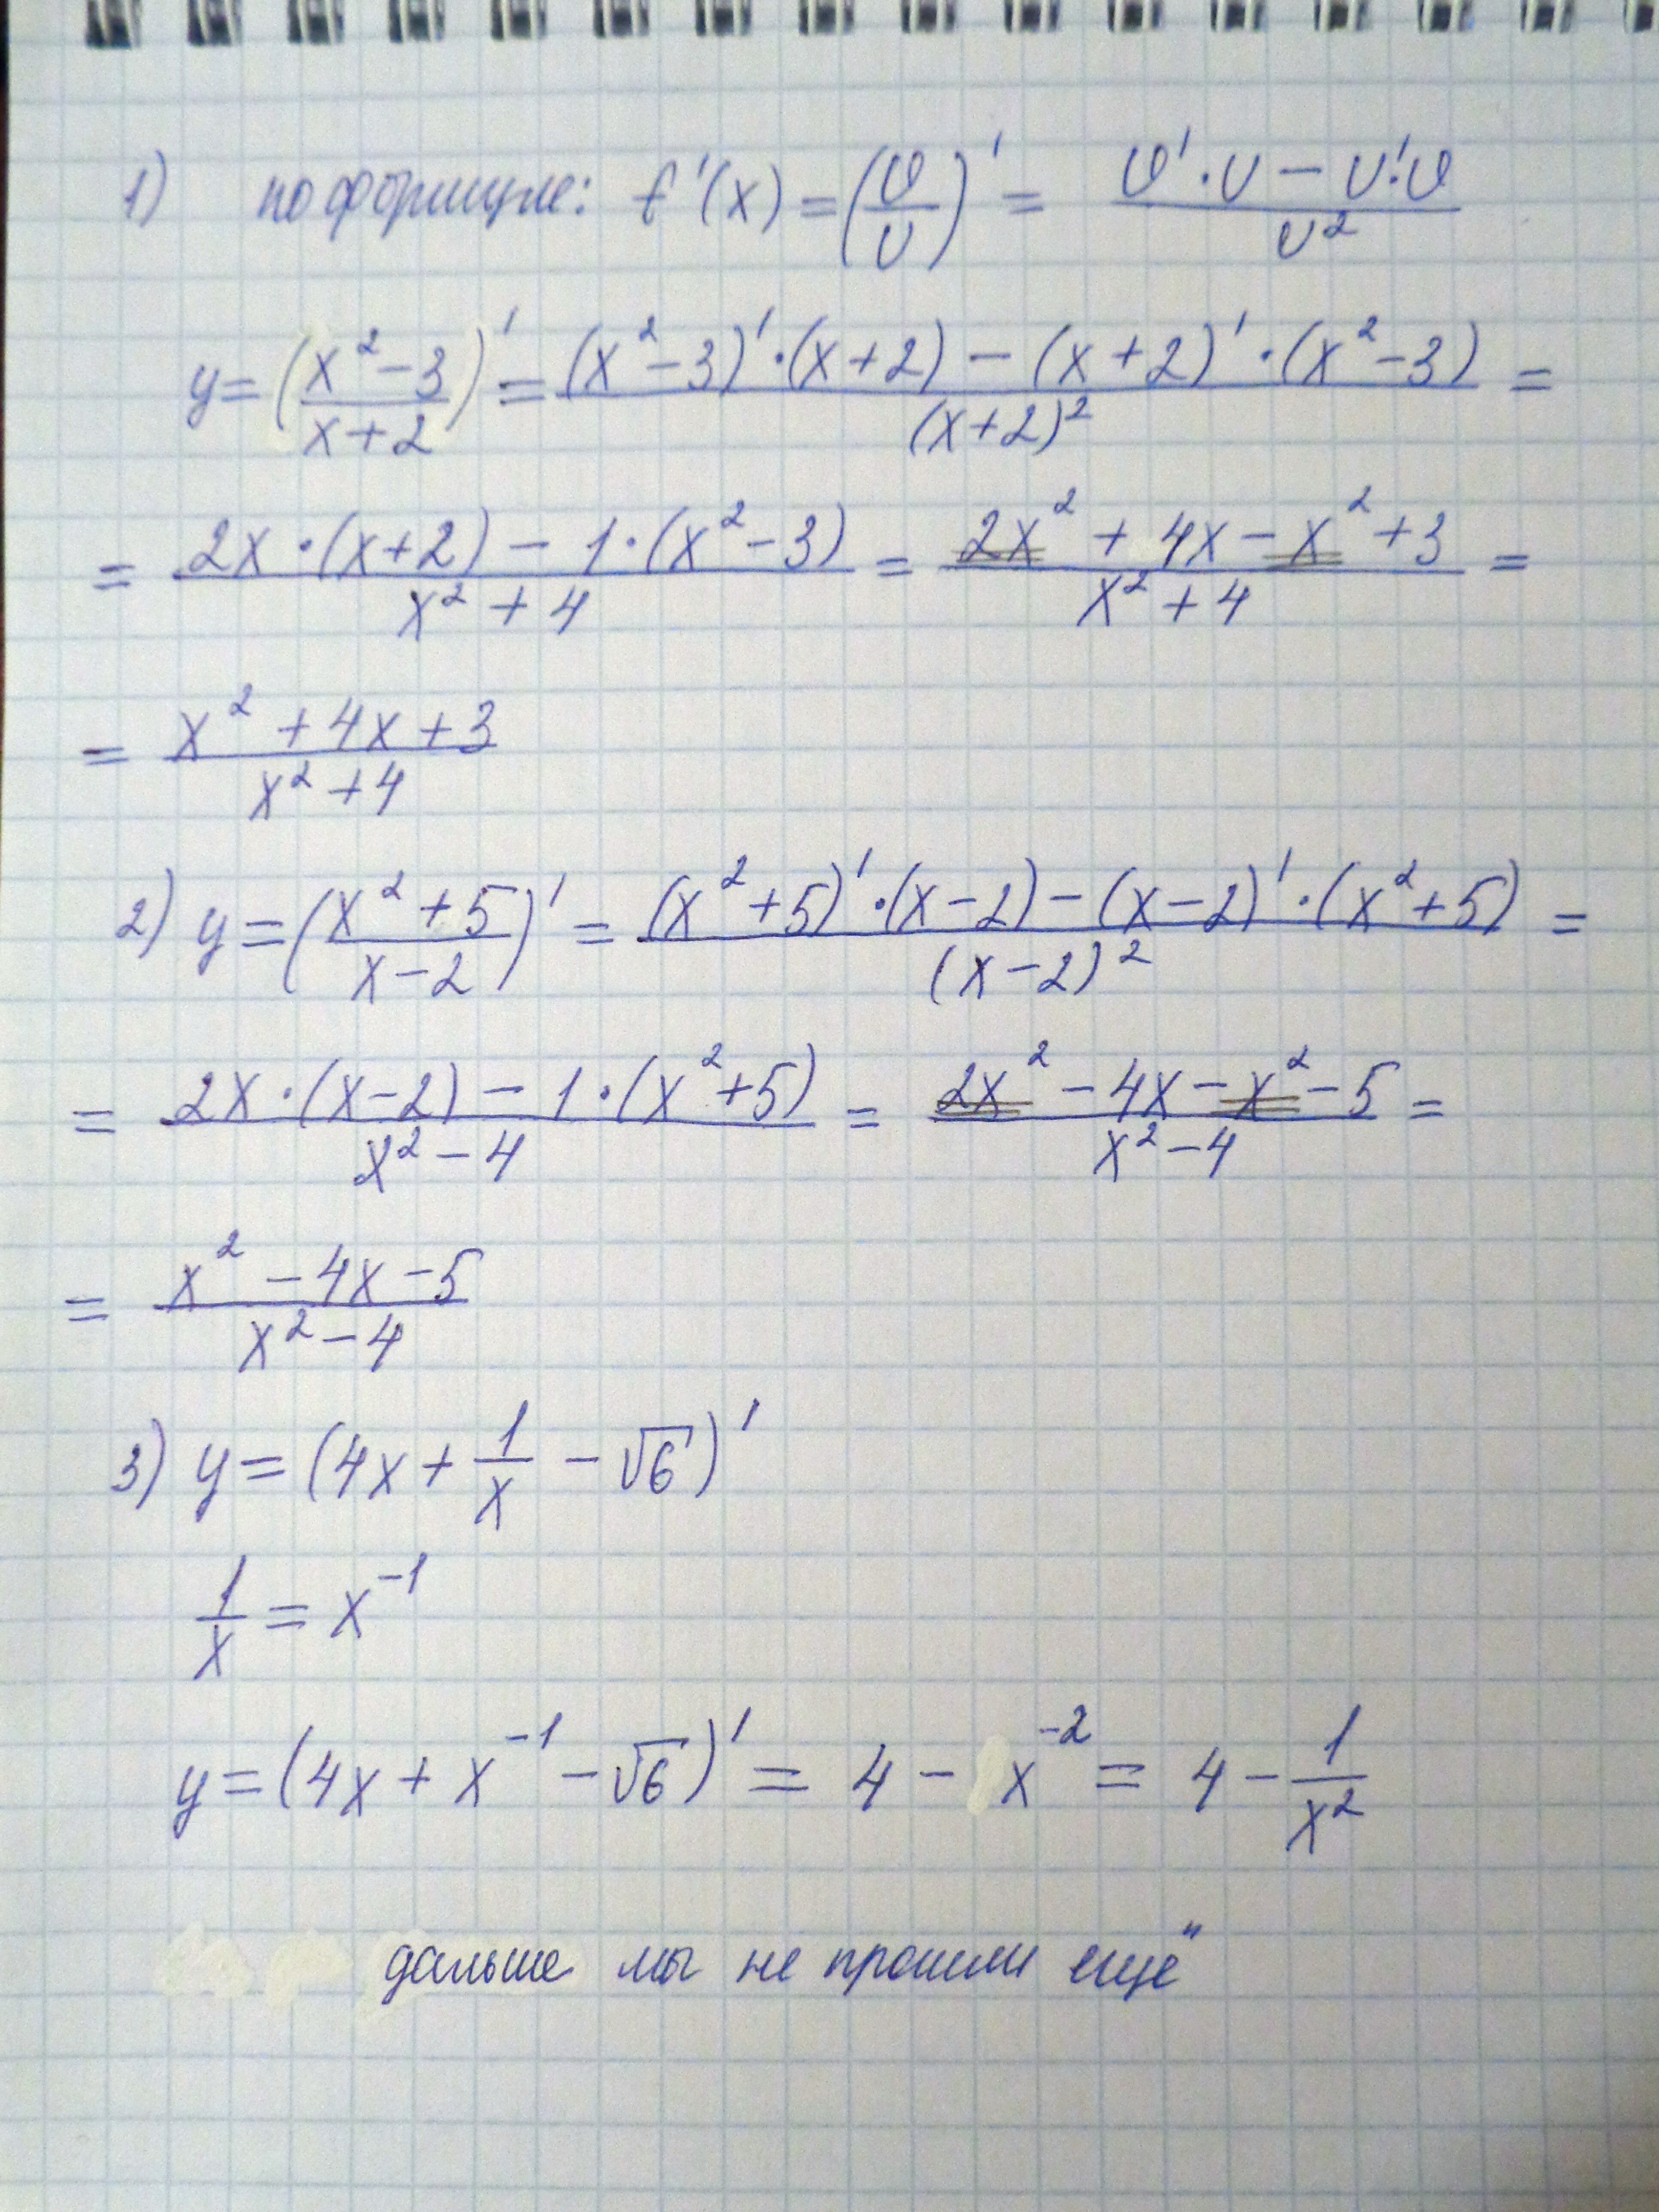 1) по формуле: f'(x) = (υ/v)' = (υ'·v − v'·υ)/v²
y = ((x²−3)/(x+2))' = ((x²−3)'·(x+2) − (x+2)'·(x²−3))/(x+2)² =
= (2x·(x+2) − 1·(x²−3))/(x²+4) = (2x² + 4x − x² + 3)/(x²+4) =
= (x² + 4x + 3)/(x²+4)
2) y = ((x²+5)/(x−2))' = ((x²+5)'·(x−2) − (x−2)'·(x²+5))/(x−2)² =
= (2x·(x−2) − 1·(x²+5))/(x²−4) = (2x² − 4x − x² − 5)/(x²−4) =
= (x² − 4x − 5)/(x²−4)
3) y = (4x + 1/x − √6)'
1/x = x⁻¹
y = (4x + x⁻¹ − √6)' = 4 − x⁻² = 4 − 1/x²
дальше мы не прошли ещё